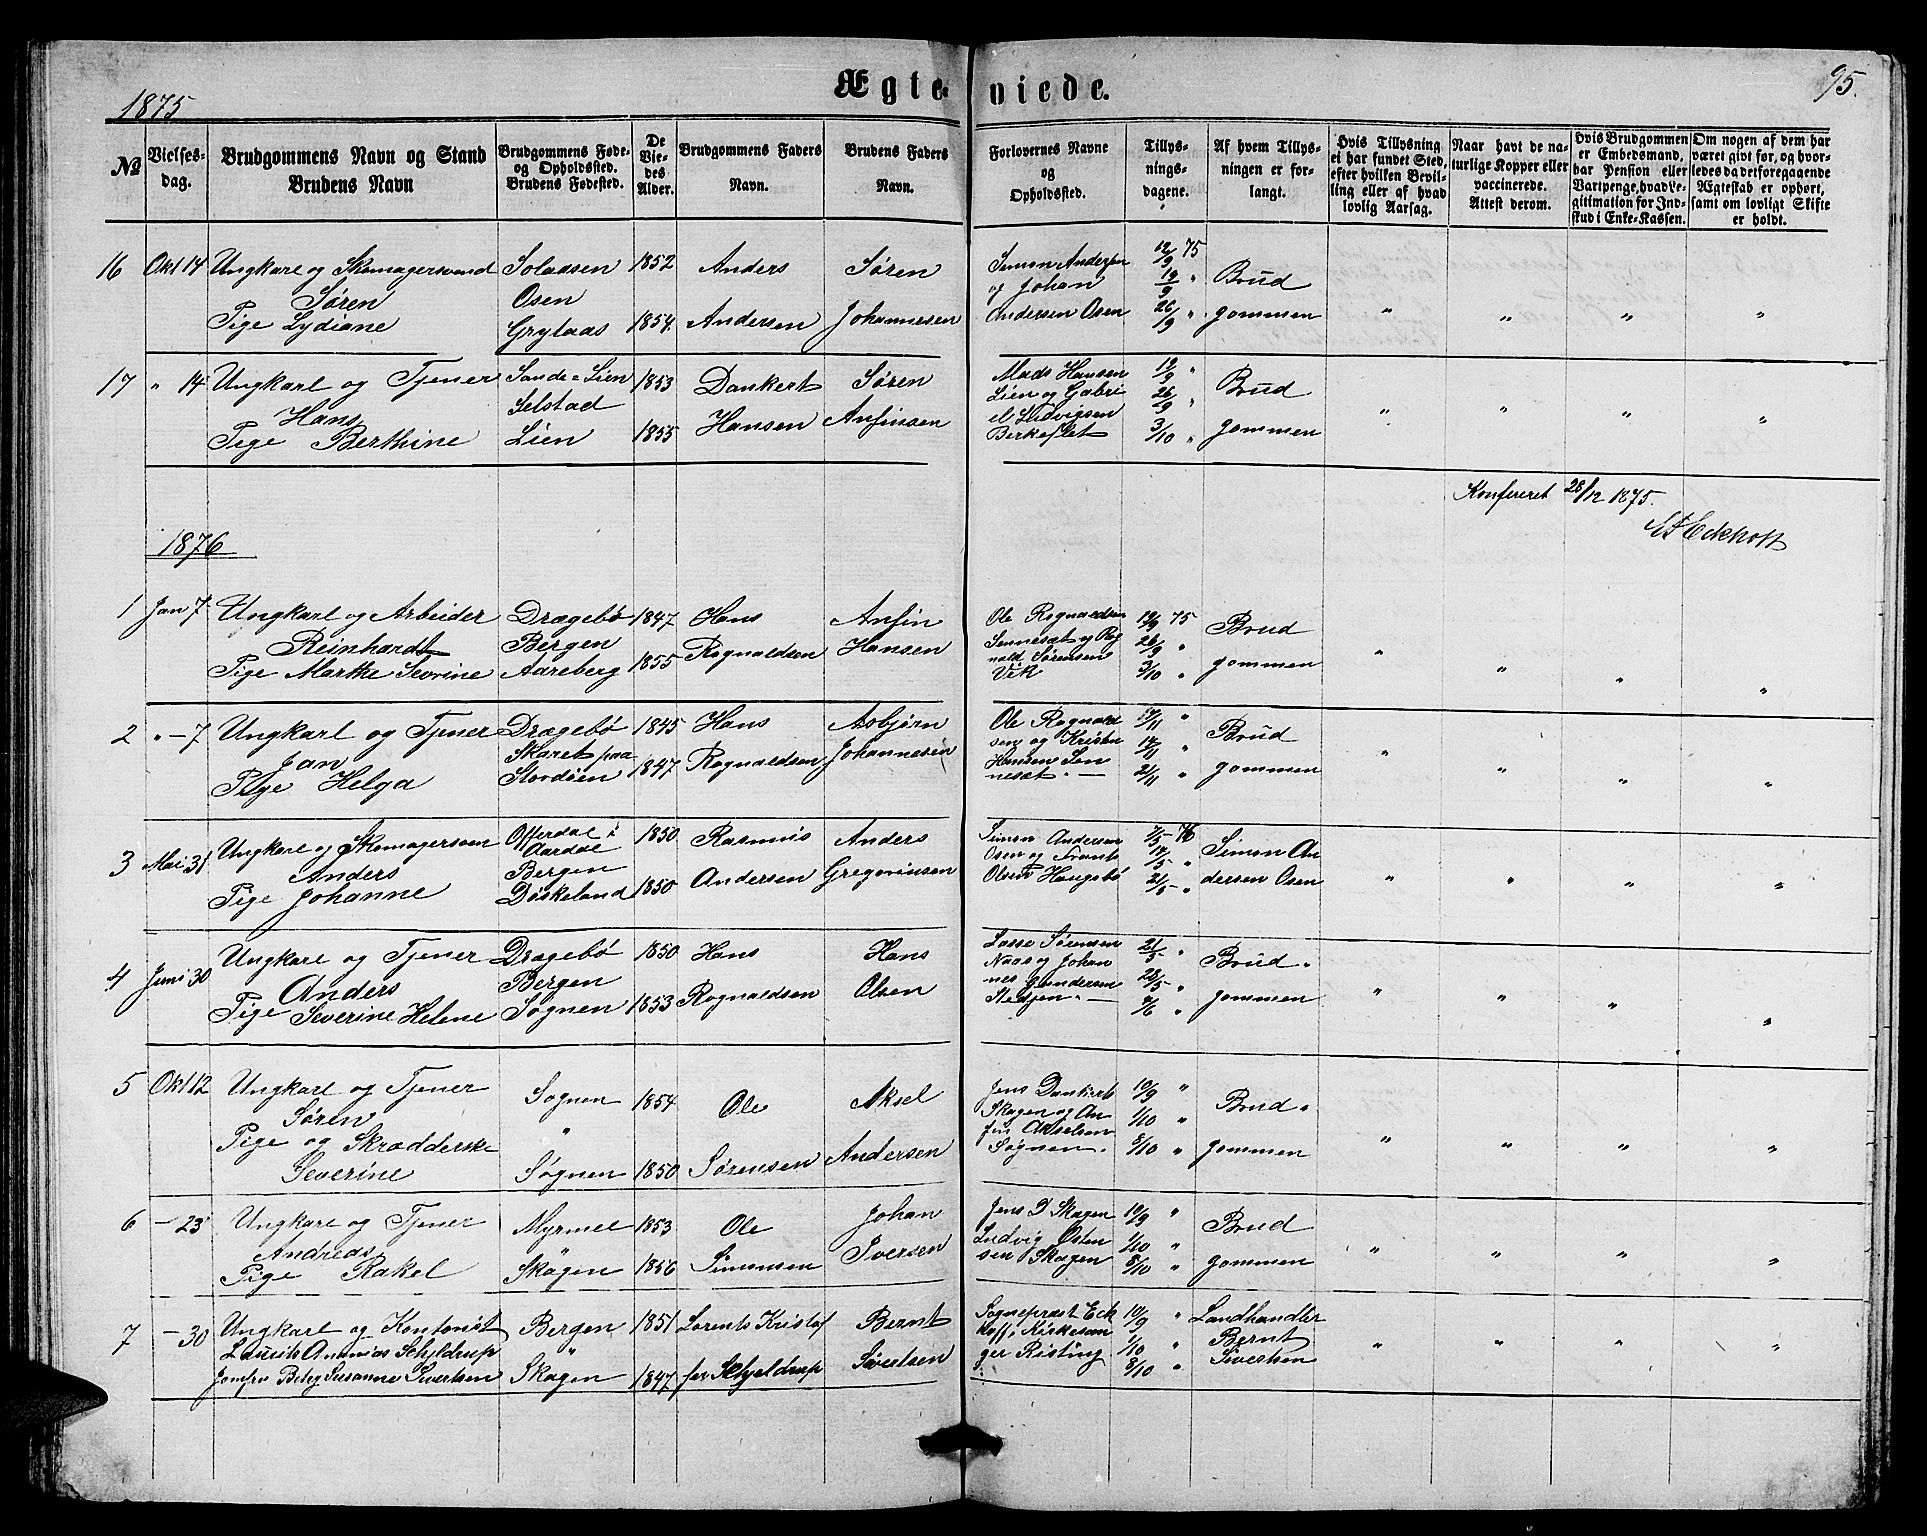 Ægteviede.
1875
95.
№
Vielsesdag.
Brudgommens Navn og Stand
Brudens Navn
Brudgommens Føde-
og Opholdssted.
Brudens Fødested.
De
Vie-
des
Alder.
Brudgommens Faders
Navn.
Brudens Faders
Navn.
Forlovernes Navne
og
Opholdssted.
Tillys-
nings-
dagene.
Af hvem Tillys-
ningen er for-
langt.
Hvis Tillysning
ei har fundet Sted,
efter hvilken Bevil-
ling eller af hvad
lovlig Aarsag.
Naar havt de na-
turlige Kopper eller
vaccinerede.
Attest derom.
Hvis Brudgommen
er Embedsmand,
har Pension eller
Vartpenge, hvad Le-
gitimation for Ind-
skud i Enke-Kassen.
Om nogen af dem har
været givt før, og hvor-
ledes da det foregaaende
Ægteskab er ophørt,
samt om lovligt Skifte
er holdt.
16 Okt 14 Ungkarl og Skomagersvend Soladsen 1852 Anders Søren
Søren Osen
Pige Lydiane Grytaas 1854. Andersen Johannesen
Simon Andersen 12/9 75
og Johan 19/9 " Brud
Andersen Osen 26/9 " gommen " " " "
17 " 14 Ungkarl og Tjener Sande-Lien 1853 Dankert Søren
Hans Selstad
Pige Berthine Lien 1855 Hansen Anfinsen
Mads Hansen 19/9 "
Lien og Gabri 26/9 " Brud
el Ludvigsen
Birkeflet 3/10 " gommen " " " "
Konfereret 28/12 1875.
Eckhoff
1876
1 Jan 7 Ungkarl og Arbeider Dragebø 1847 Hans Anfin
Reinhardt Bergen
Pige Marthe Sevrine Aareberg 1855 Rognaldsen Hansen
Ole Rognaldsen 19/9 75
Sennesæt og Rog 26/9 " Brud
nald Sørensen
Vik 3/10 " gommen " " " "
2 " - 7 Ungkarl og Tjener Dragebø 1845 Hans Asbjørn
Jan Skaret paa
Pige Helga Stordøen 1847 Rognaldsen Johannesen
Ole Rognald 7/11 "
sen og Kristen 14/11 " Brud
Hansen Sen
nesæt. — 21/11 " gommen " " " "
3 Mai 31 Ungkarl og Skomagersven Offerdal i 1850 Rasmus Anders
Aardal
Anders Bergen
Pige Johanne Døskeland 1850 Andersen Gregoriusen
Simon Andersen 7/5 - 76
Osen og Frants 14/5 " Simon An
Olsen Haugsbø 21/5 " dersen Osen " " " "
4 Juni 30 Ungkarl og Tjener Dragebø 1850 Hans Hans
Anders Bergen
Pige Severine Helene Sognen 1853 Rognaldsen Olsen
Lasse Sørensen 21/5 "
Naas og Johan Brud "
nes Gundersen 28/5 "
Stedjen. — 4/6 " gommen " " " "
5 Okt 12 Ungkarl og Tjener Sognen 1854 Ole Aksel
Søren "
Pige og Skrædderske
Severine Søgnen 1850 Sørensen Andersen
Jens Dankert 10/9 "
Skagen og An 1/10 " Brud "
fin Akselsen
Søgnen. 8/10 " gommen " " " "
6 — 23 Ungkarl og Tjener Myrmel 1853 Ole Johan
Andreas
Pige Rakel Skagen 1856 Simonsen Iversen
Jens D Skagen 10/9 "
Ludvig Osten 1/10 " Brud
sen Skagen 8/10 " gommen " " " "
7 — 30 Ungkarl og Kontorist Bergen 1851 Lorents Kristof Bernt
Laurits Ananias Schjeldrup "
Jomfru Betzy Susanne Sivertsen Skagen 1847 fer Schjeldrup Sivertsen
Sogneprest Eck 10/9 " Landhandler
hoff i Kirkesan 1/10 " Bernt
ger Risting 8/10 " Sivertsen " " " "